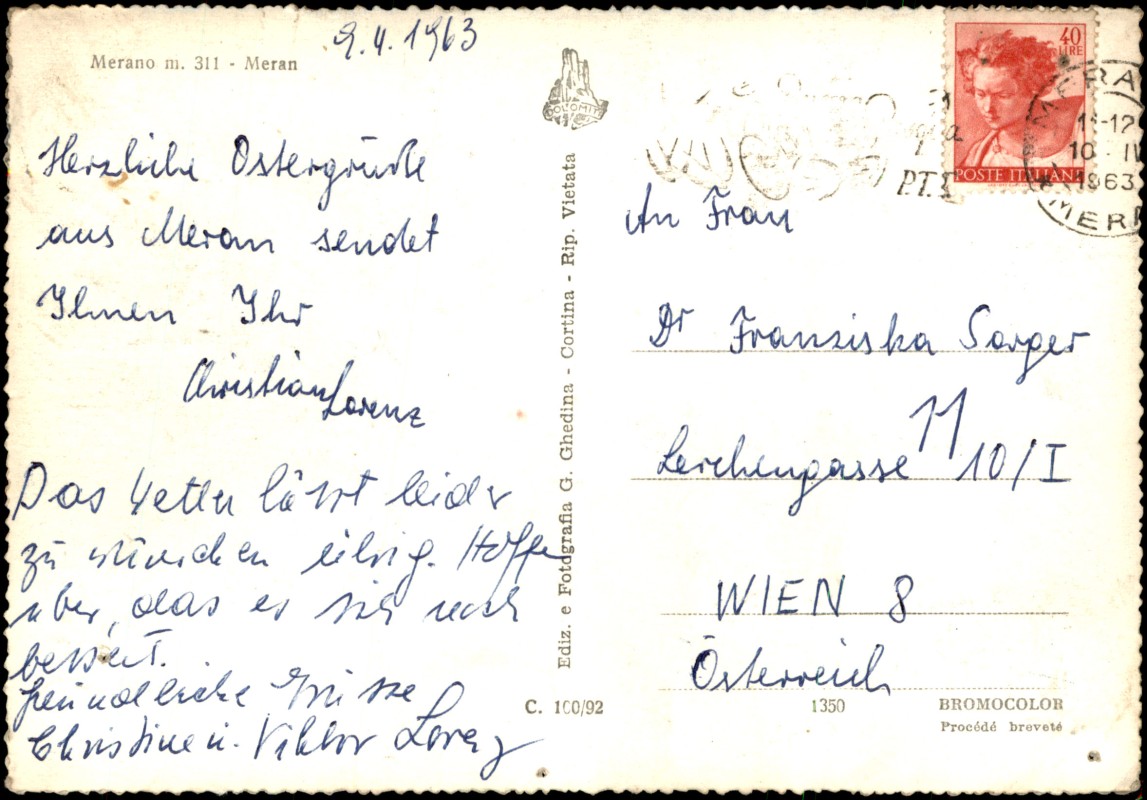 9.4.1963
Merano m. 311 - Meran
Herzliche Ostergrüße
aus Meran sendet
Ihnen Ihr
Christian Lorenz
Das Wetter lässt leider
zu wünschen übrig. Hoffe
aber, das es sich noch
bessert.
freundliche Grüsse
Christine u. Viktor Lorenz
DOLOMITI
Ediz. e Fotografia G. Ghedina - Cortina - Rip. Vietata
C. 100/92
40
LIRE
POSTE ITALIANE
P.T.
MERA
11-12
10 IV
1963
MER
An Frau
Dr Franziska Sorger
11
Lerchengasse 10/I
WIEN 8
Österreich
1350
BROMOCOLOR
Procédé breveté